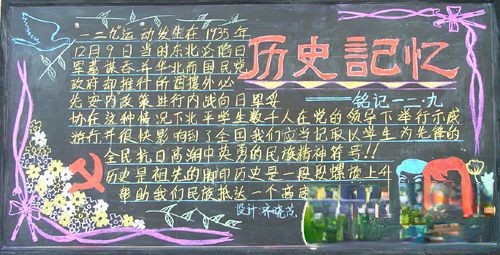 历史記忆
——铭记一二·九
一二九运动发生在1935年
12月9日当时东北沦陷日
军蓄谋吞并华北而国民党
政府却推行所谓攘外必
先安内政策进行内战向日军妥
协在这种情况下北平学生数千人在党的领导下举行示威
游行并很快影响到了全国我们应当记取以学生为先锋的
全民抗日高潮中英勇的民族精神符号!!
历史是祖先的脚印历史是一段段螺旋上升
帮助我们民族抵达一个高度
设计: